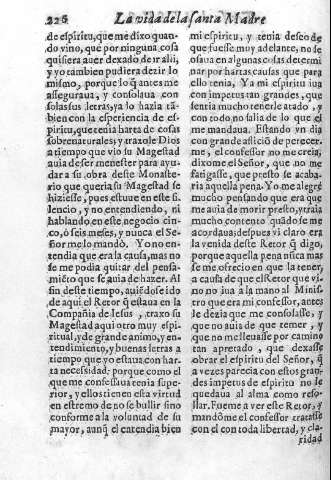 226 La vida de la santa Madre
de espiritu, que me dixo quan-
do vino, que por ninguna cosa
quisiera auer dexado de ir alli,
y yo tambien pudiera dezir lo
mismo, porque lo q̃ antes me
asseguraua, y consolaua con
solas sus letras, ya lo hazia tã-
bien con la esperiencia de es-
piritu, que tenia harta de cosas
sobrenaturales, y traxole Dios
a tiempo que vio su Magestad
auia de ser menester para ayu-
dar a su obra deste Moñaste-
rio que queria su Magestad se
hiziesse, pues estuue en este si-
lencio, y no entendiendo, ni
hablando, en este negocio cin-
co, ò seis meses, y nunca el Se-
ñor me lo mandò. Yo no en-
tendia que era la causa, mas no
se me podia quitar del pensa-
miẽto que se auia de hazer. Al
fin deste tiempo, auiẽdose ido
de aqui el Retor q̃ estaua en la
Compañia de Iesus, traxo su
Magestad aqui otro muy espi-
ritual, y de grande animo, y en-
tendimiento, y buenas letras a
tiempo que yo estaua con har-
ta necessidad; porque como el
que me confessaua tenia supe-
rior, y ellos tienen esta virtud
en estremo de no se bullir sino
conforme a la voluntad de su
mayor, aunq̃ el entendia bien
mi espiritu, y tenia desseo de
que fuesse muy adelante, no se
osaua en algunas cosas deter-
minar por hartas causas que para
ello tenia. Ya mi espiritu iua
con impetus tan grandes, que
sentia mucho tenerle atado, y
con todo no salia de lo que el
me mandaua. Estando vn dia
con grande aflicion de parecer-
me, el confessor no me creia,
dixome el Señor, que no me
fatigasse, que presto se acaba-
ria aquella pena. Yo me alegrè
mucho pensando que era que
me auia de morir presto, y traia
mucho contento quãdo se me
acordaua; despues vi claro era
la venida deste Retor q̃ digo,
porque aquella pena nũca mas
se me ofrecio en que la tener,
a causa de que el Retor que vi-
no no iua a la mano al Minis-
tro que era mi confessor, antes
le dezia que me consolasse, y
que no auia de que temer, y
que no me lleuasse por camino
tan apretado, que dexasse
obrar el espiritu del Señor, q̃
a vezes parecia con estos gran-
des impetus de espiritu no le
quedaua al alma como reso-
llar. Fueme a ver este Retor, y
mandòme el confessor tratasse
con el con toda libertad, y cla-
ridad